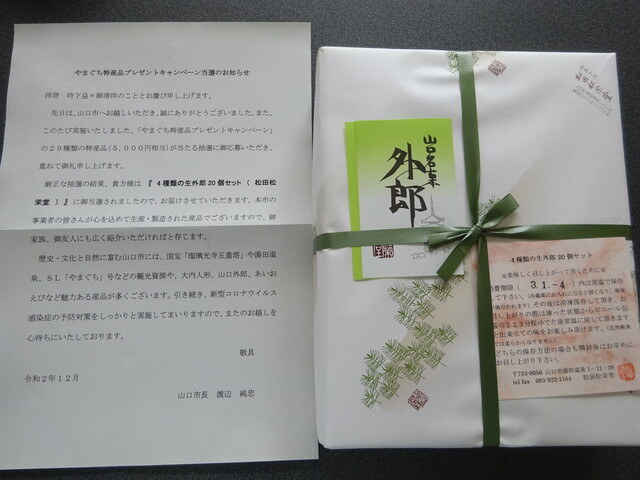 やまぐち特産品プレゼントキャンペーン当選のお知らせ
拝啓 時下益々御清祥のこととお慶び申し上げます。
先日は、山口市へお越しいただき、誠にありがとうございました。また、
このたび実施いたしました、「やまぐち特産品プレゼントキャンペーン」
の29種類の特産品(5,000円相当)が当たる抽選に御応募いただき、
重ねて御礼申し上げます。
厳正な抽選の結果、貴方様は『 4種類の生外郎20個セット ( 松田松
栄堂 ) 』に御当選されましたので、お届けさせていただきます。本市の
事業者の皆さんが心を込めて生産・製造された産品でございますので、御
家族、御友人にも広く紹介いただければと存じます。
歴史・文化と自然に富む山口市には、国宝「瑠璃光寺五重塔」や湯田温
泉、SL「やまぐち」号などの観光資源や、大内人形、山口外郎、あいお
えびなど魅力ある産品が多くございます。引き続き、新型コロナウイルス
感染症の予防対策をしっかりと実施してまいりますので、またのお越しを
心待ちにいたしております。
敬具
令和2年12月
山口市長 渡辺 純忠
山口名菓
外郎
4種類の生外郎20個セット
※美味しく召し上がって頂くために※
消費期限( 3.1.-4 )内は常温で保存
して下さい。
〒753-0056 山口市湯田温泉1-11-29
tel fax 083-922-1164 松田松栄堂